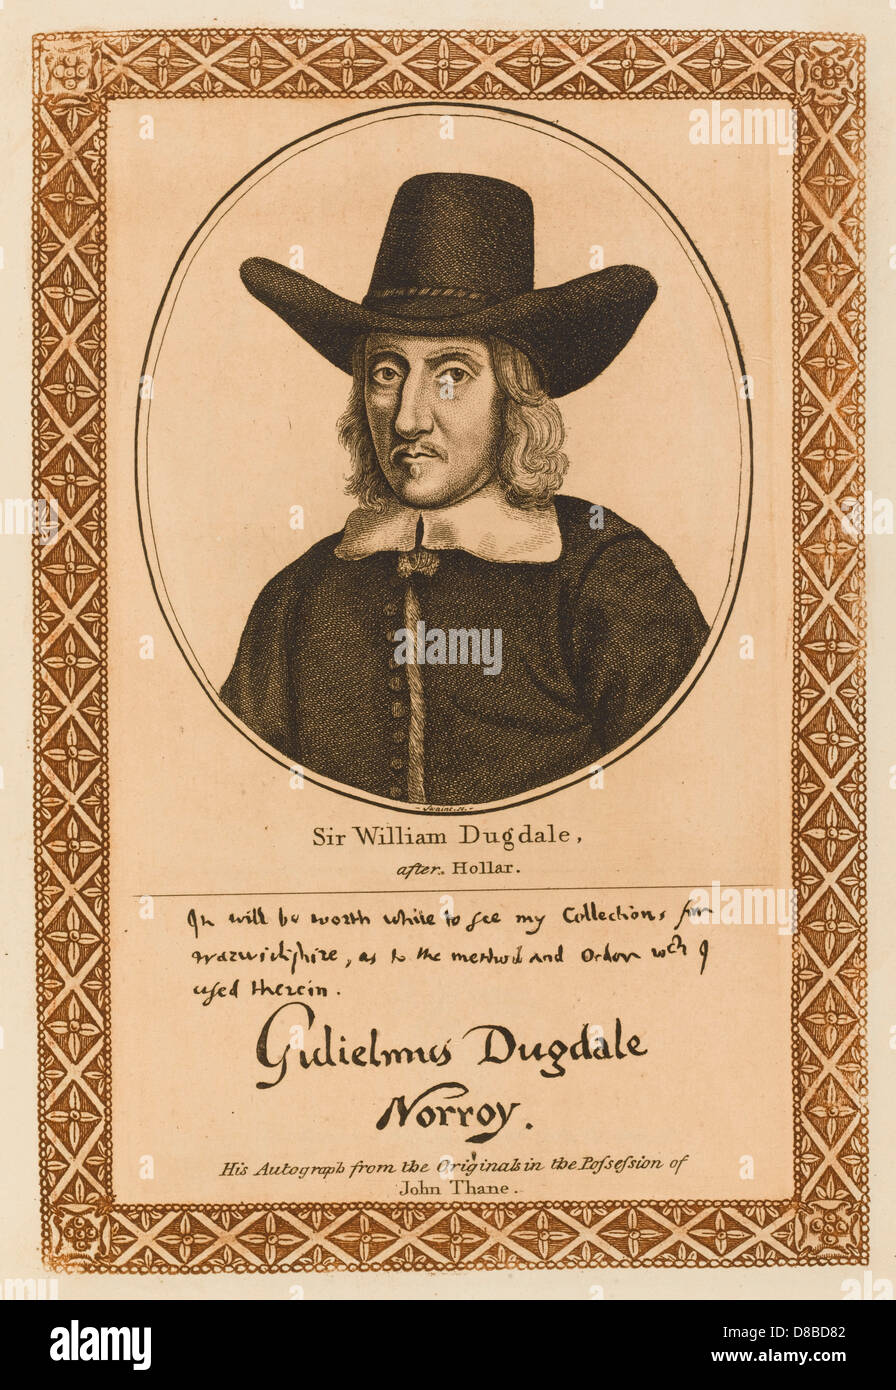 Swaine. sc.
Sir William Dugdale,
after. Hollar.
It will be worth while to see my Collections for
Warwickshire, as to the method and Order wch I
used therein.
Gulielmus Dugdale
Norroy.
His Autograph from the Originals in the Possession of
John Thane.
alamy
alamy
Image ID: D8BD82
www.alamy.com